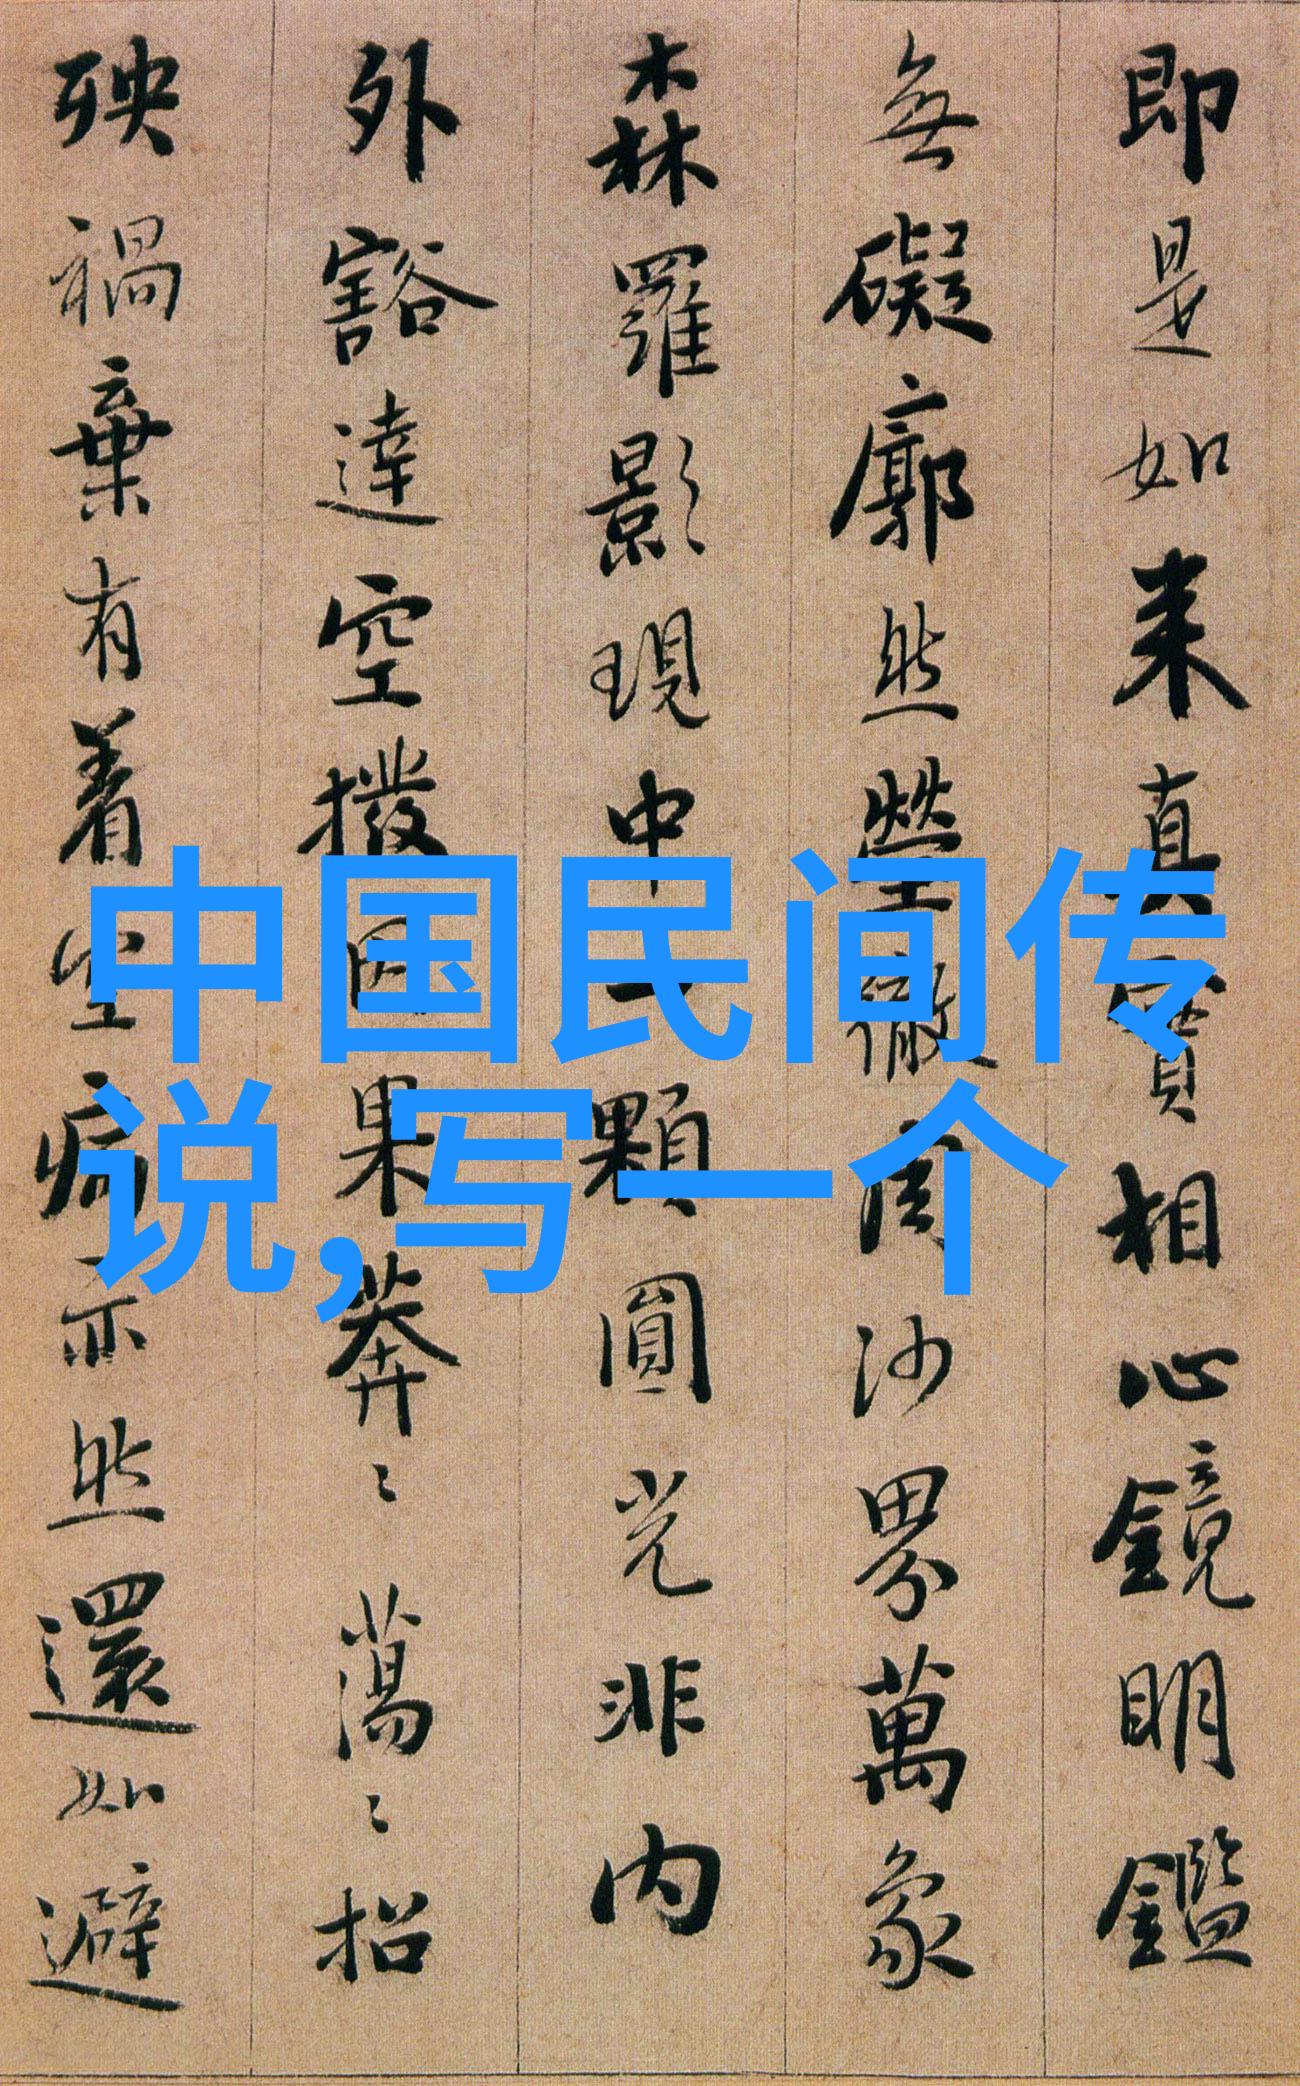 即是如来真實相心鏡明鑑
無礙廓然瑩徹周沙界萬象
森羅影現中一顆圓光非内
外豁達空撥因果莽〻蕩〻招
殃禍棄有着空病亦然還如避
中国民间传
说,写一个